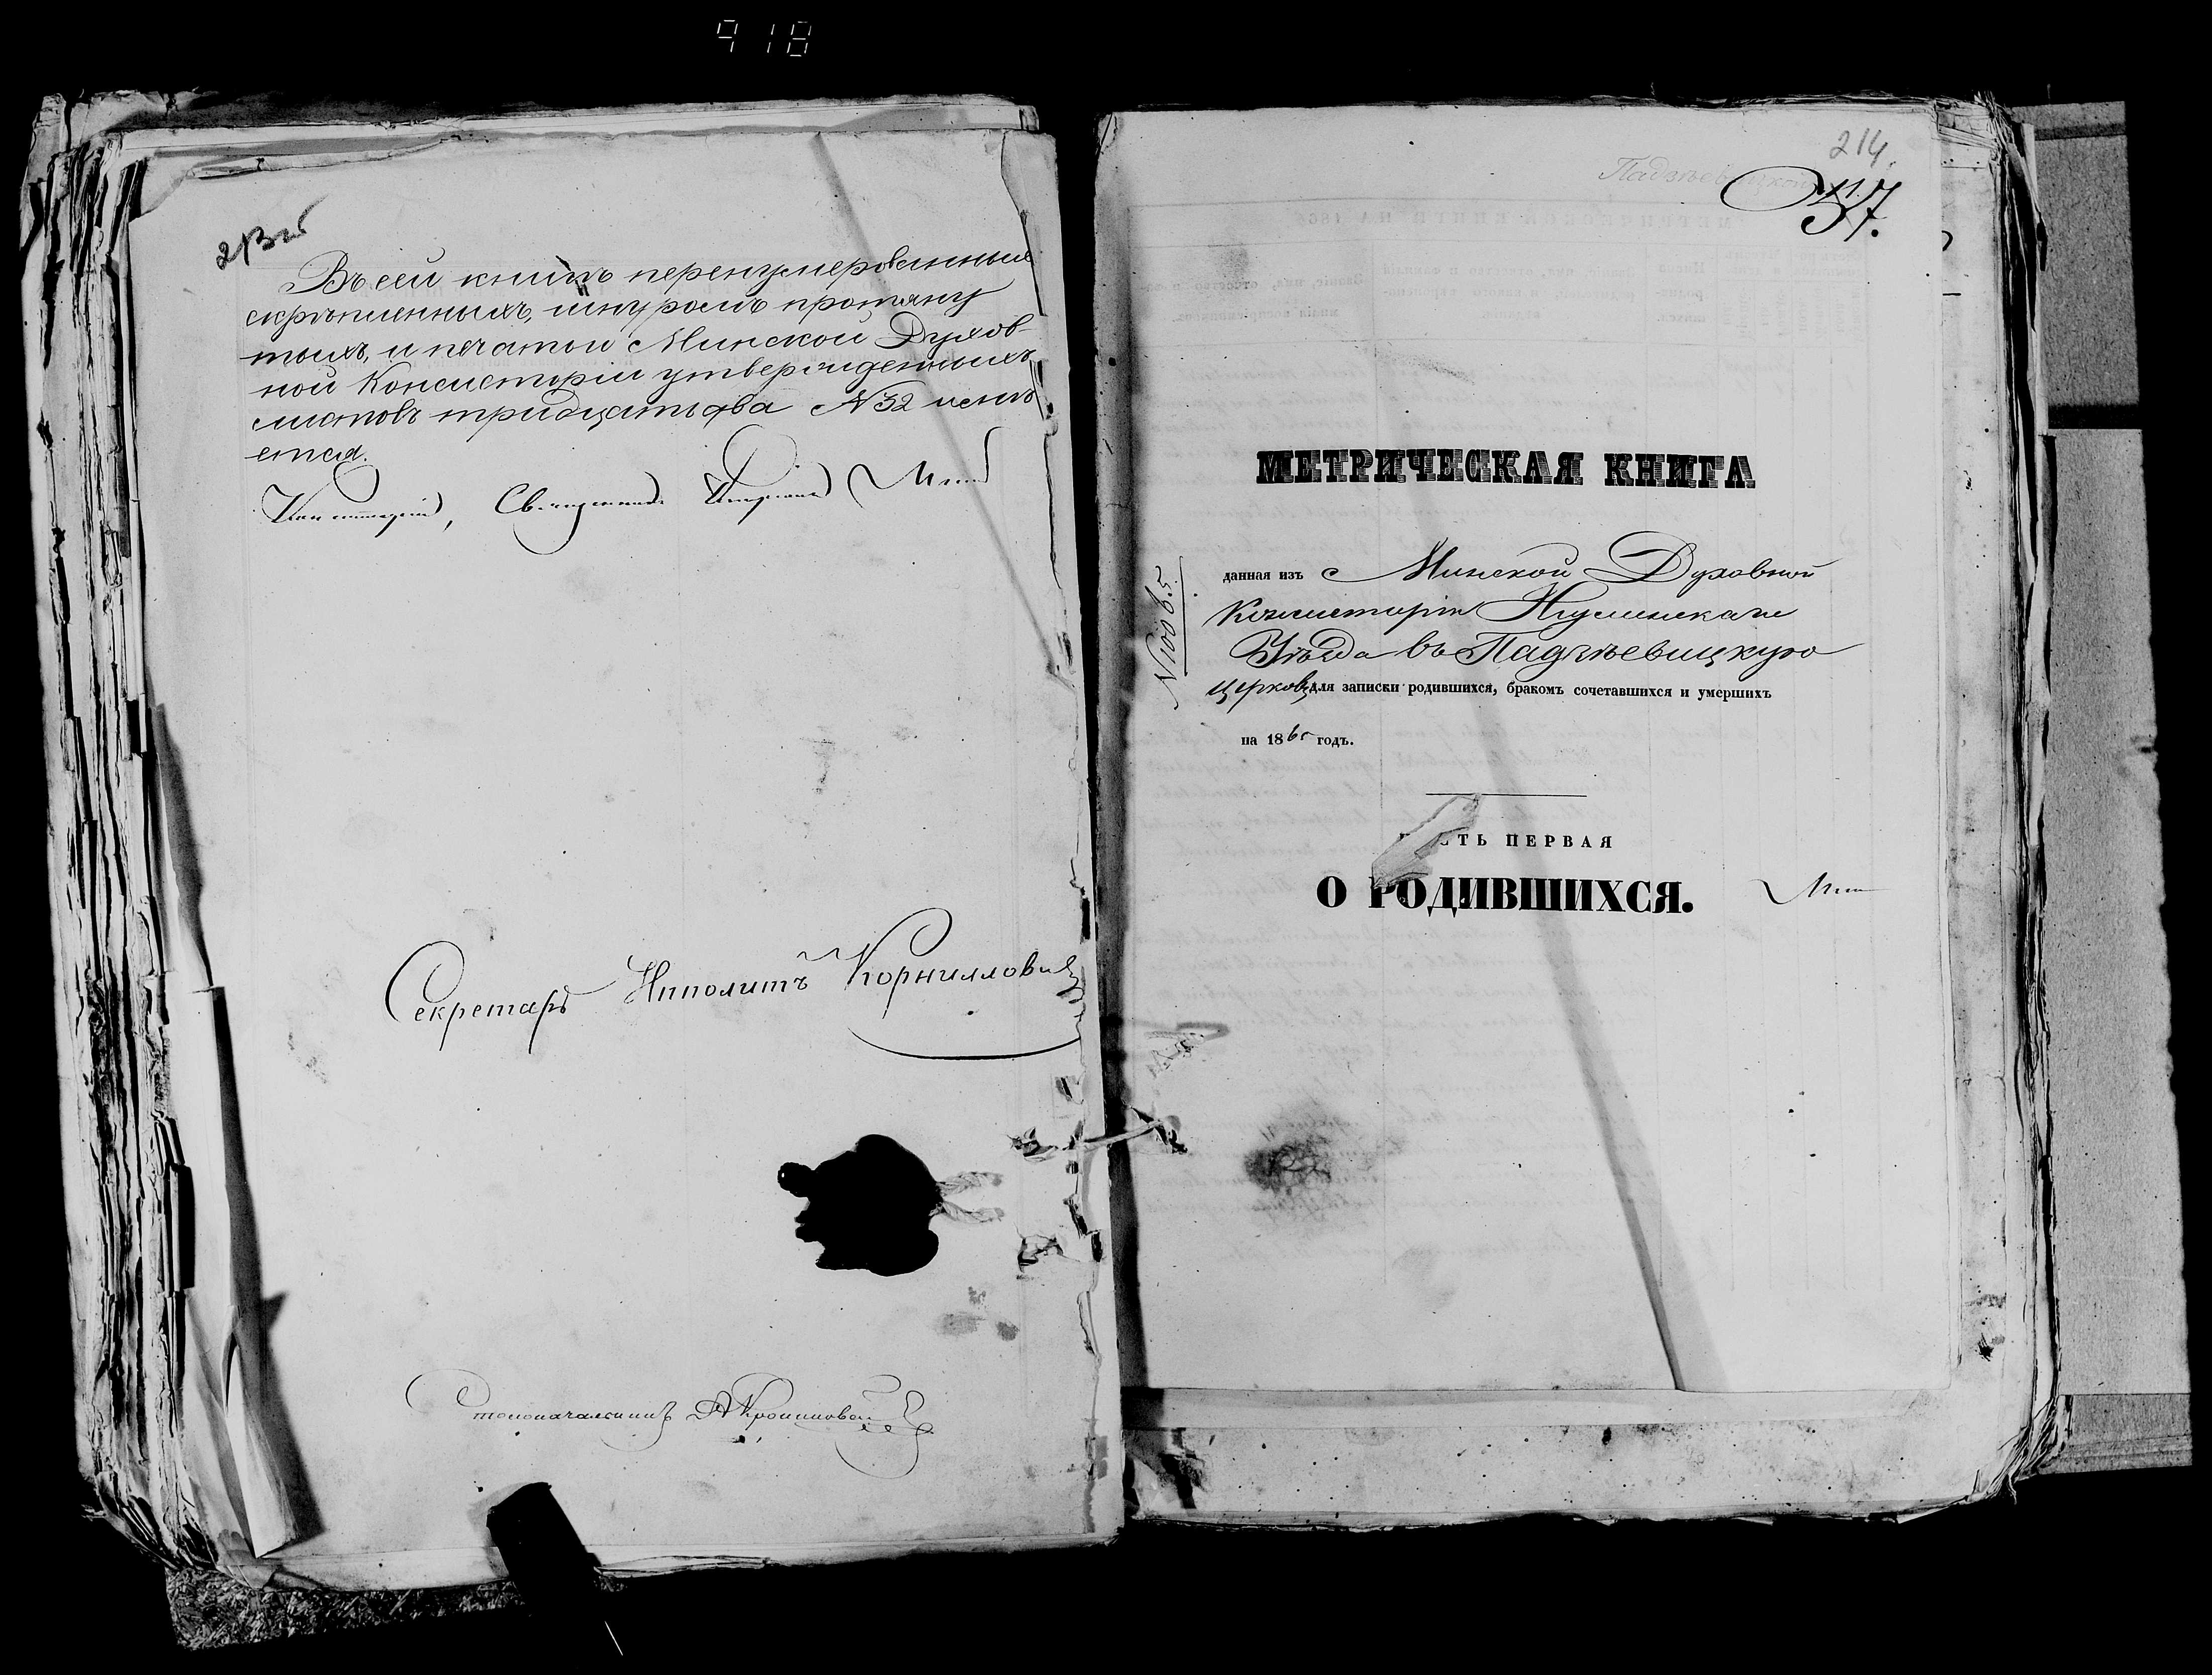 918
213 об
Въ сей книгѣ перенумерованныхъ
скрѣпленныхъ, шнуромъ протяну
тыхъ, и печатью Минской Духов-
ной Консисторіи утвержденныхъ
листовъ тридцать два N 32 имѣ
ется.
Священникъ
Секретарь Ипполитъ Корнилловичъ
Столоначальникъ
214.
57.
МЕТРИЧЕСКАЯ КНИГА
данная изъ Минской Духовной
Консисторіи Игуменскаго
Уѣзда въ Падзѣевицкую
церковь для записки родившихся, бракомъ сочетавшихся и умершихъ
на 1865 годъ.
ЧАСТЬ ПЕРВАЯ
О РОДИВШИХСЯ.
N 10065.